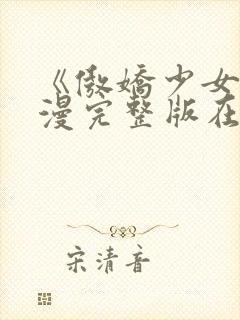 《傲娇少女
漫完整版在
宋清音